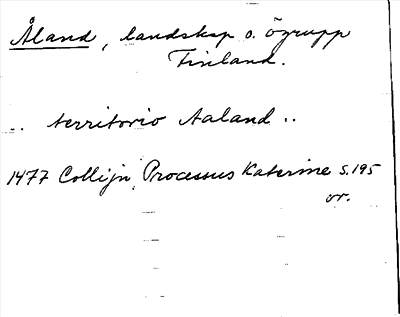 Åland, landskap o. ögrupp
Finland.
.. territorio Aaland ..
1477 Collijn, Processus Katerine s.195
or.